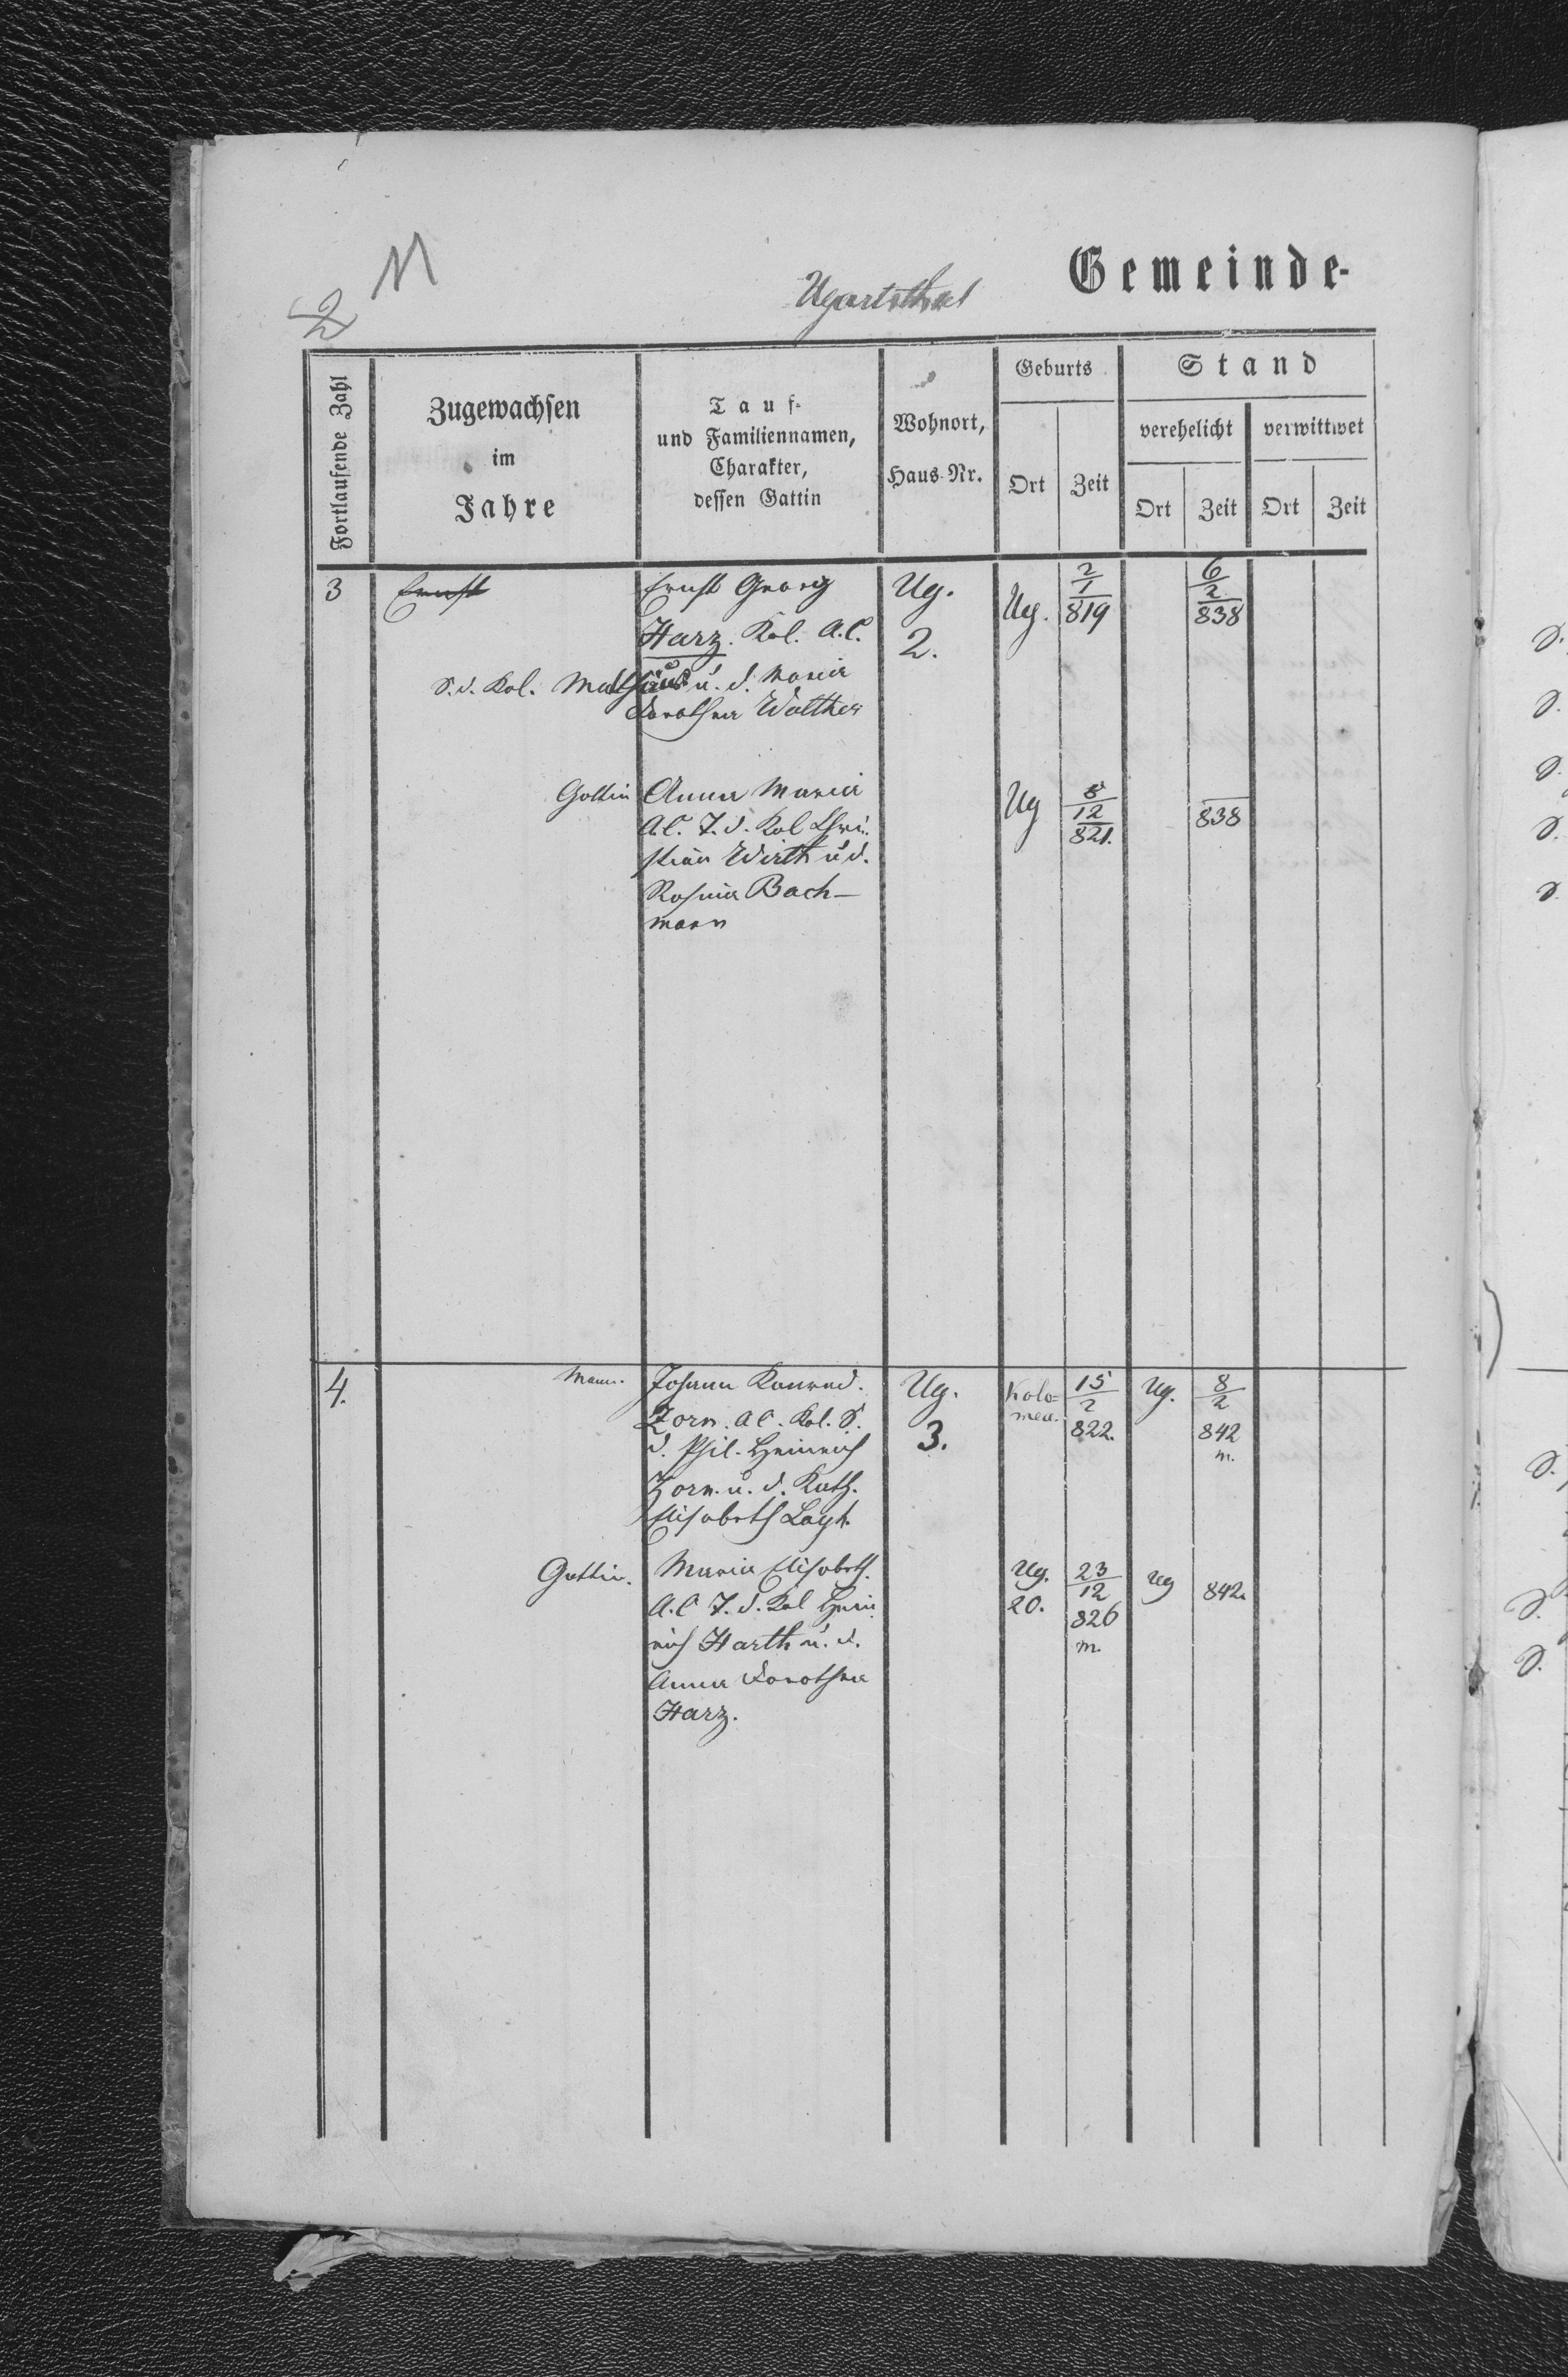 M
2
Ugartsthal
Gemeinde-
Fortlaufende Zahl
Zugewachsen
im
Jahre
Tauf-
und Familiennamen,
Charakter,
dessen Gattin
Wohnort,
Haus-Nr.
Geburts
Ort
Zeit
Stand
verehelicht
Ort
Zeit
verwittwet
Ort
Zeit
3
Ernst
Ernst Georg
Harz. Kol. A.C.
S. d. Kol. Mathäus u. d. Maria
Dorothea Walther
Ug.
2.
Ug.
2
1
819
6
2
838
Gattin
Anna Maria
A.C. T. d. Kol Chri-
stian Wirth u d.
Rosina Bach-
mann
Ug
8
12
821.
838
4.
Mann.
Johann Konrad.
Zorn. AC. Kol. S.
d. Phil. Heinrich
Zorn. u. d. Kath.
Elisabeth
Ug.
3.
Kolo=
mea.
15
2
822.
Ug.
8
2
842
m.
Gattin.
Maria Elisabeth.
A.C T. d. Kol Hein
rich Harth u. d.
Anna Dorothea
Harz.
Ug.
20.
23
12
826
m.
Ug
842.
S.
S.
S.
S.
S.
S.
S.
S.